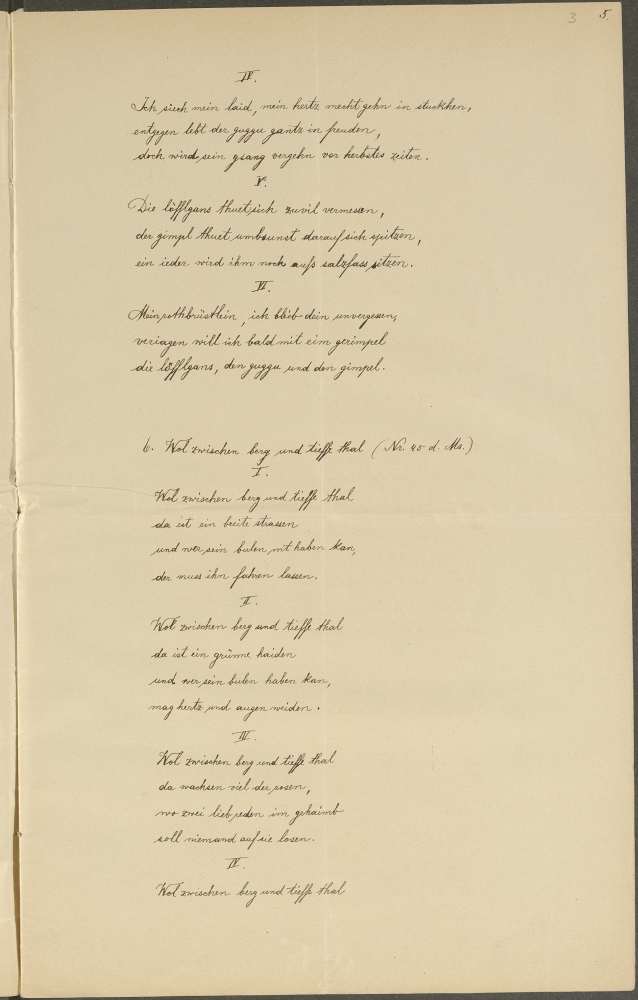 3 5.
IV.
Ich siech mein laid, mein hertz mecht gehn in stuckhen,
entgegen lebt der guggu gantz in freuden,
doch wird sein gsang vergehn vor herbstes zeiten.
V.
Die löfflgans thuet sich zuvil vermessen,
der gimpl thuet umbsunst darauf sich spitzen,
ein ieder wird ihm noch aufs salzfass sitzen.
VI.
Mein rothbrüstlein, ich bleib dein unvergessen,
veriagen will ich bald mit eim gerimpel
die löfflgans, den guggu und den gimpel.
6. Wol zwischen berg und tieffe thal (Nr. 45 d. Ms.)
I.
Wol zwischen berg und tieffe thal
da ist ein breite strassen
und wer sein bulen nit haben kan,
der muss ihn fahren lassen.
II.
Wol zwischen berg und tieffe thal
da ist ein grünne haiden
und wer sein bulen haben kan,
mag hertz und augen weiden.
III.
Wol zwischen berg und tieffe thal
da wachsen viel der rosen,
wo zwei lieb reden im gehaimb
soll niemand auf sie losen.
IV.
Wol zwischen berg und tieffe thal